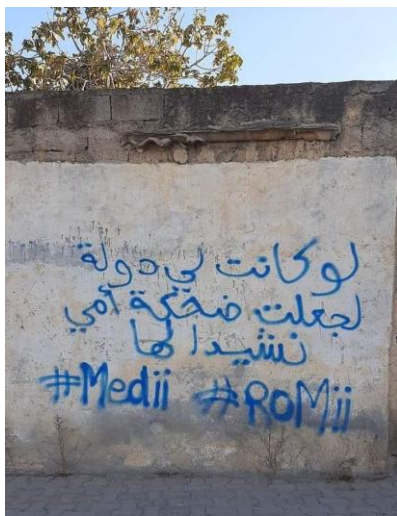 لو كانت لي دولة
لجعلت ضحكة أمي
نشيدا لها
#Medii #RoMii